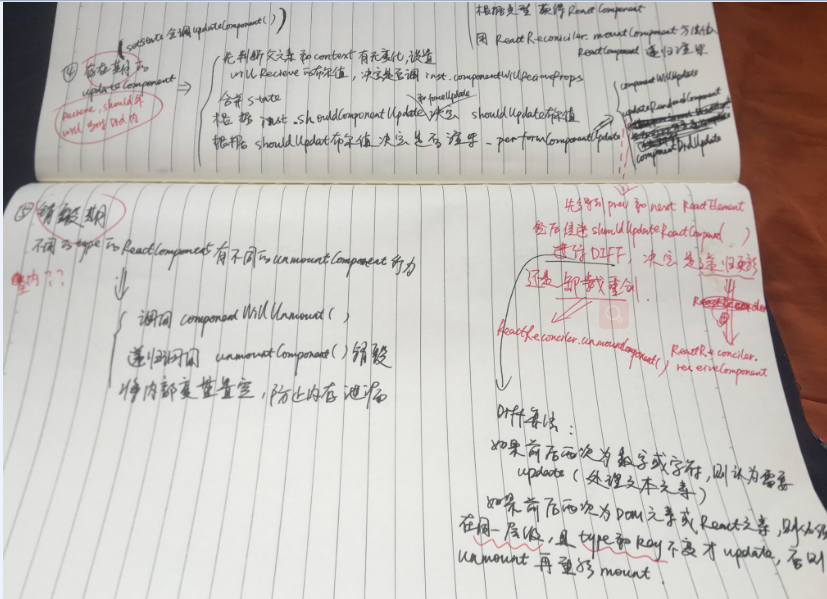 根据类型获得ReactComponent
用ReactReconciler.mountComponent方法
ReactComponent递归渲染
(setState会调updateComponent()
④存在期的
updateComponent
先判断父元素和context有无变化,设置
willRecieve的布尔值,决定是否调inst.componentWill
合并state
和forceUpdate
根据inst.shouldComponentUpdate决定shouldUpdate布尔值
根据shouldUpdat布尔值决定是否渲染_performComponentUpdate
componentWillUpdate
componentDidUpdate
⑤销毁期
不同的type的ReactComponent有不同的unmountComponent行为
调用componentWillUnmount()
递归调用unmountComponent()销毁
将内部变量置空,防止内存泄漏
先得到prev和next ReactElement
然后经过shouldUpdateReactComponent()
进行DIFF,决定是递归更新
还是卸载重创.
ReactReconciler.unmountComponent()
ReactReconciler.
receiveComponent
Diff算法:
如果前后两次为数字或字符,则认为需要
update(处理文本元素)
如果前后两次为Dom元素或React元素,则必须
在同一层级,且type和key不变才update,否则
unmount再重新mount.